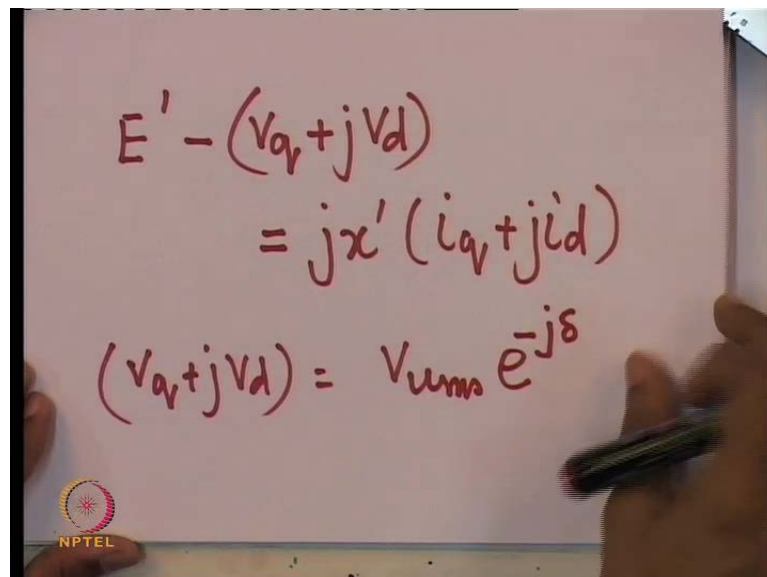 E' - (Vq + j Vd)
= jx' (iq + j id)
(Vq + j Vd) = Vrms e^-jδ
NPTEL